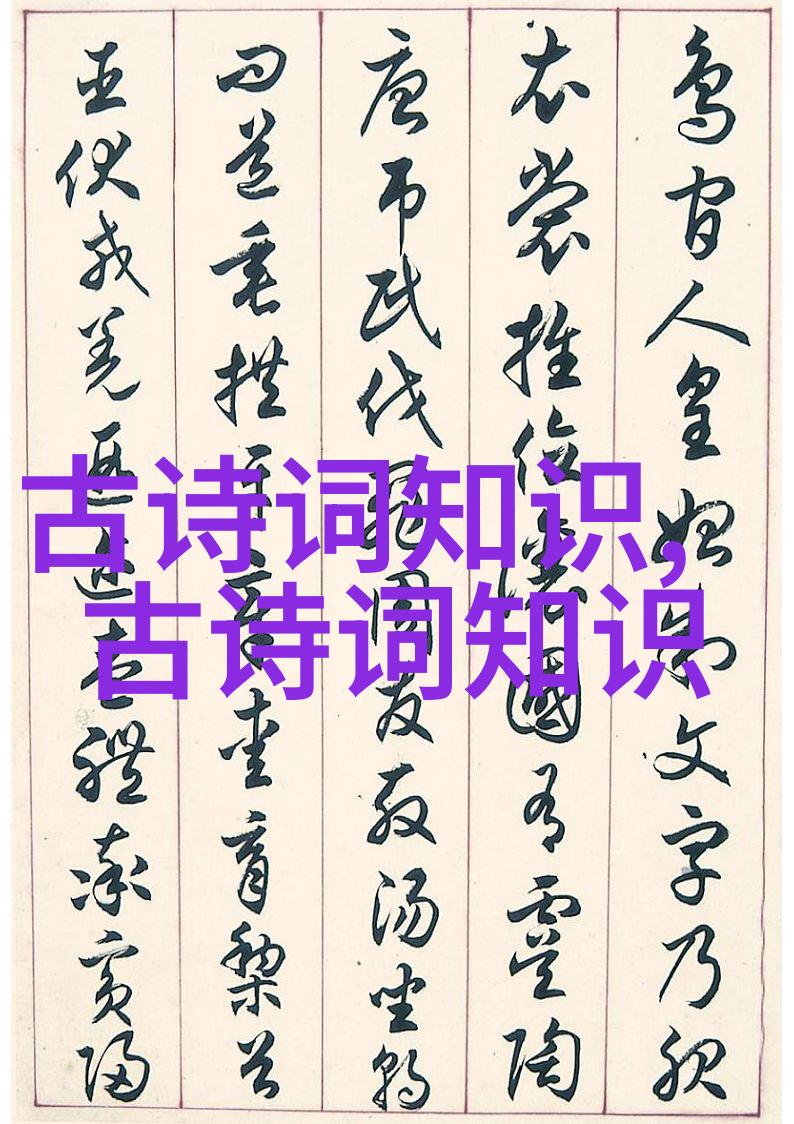 鳥官人皇始制文字乃服
衣裳推位讓國有虞陶
唐吊民伐罪周發殷湯坐朝
问道垂拱平章愛育黎首
臣伏戎羌遐迩壹體率賓歸
古诗词知识,
古诗词知识